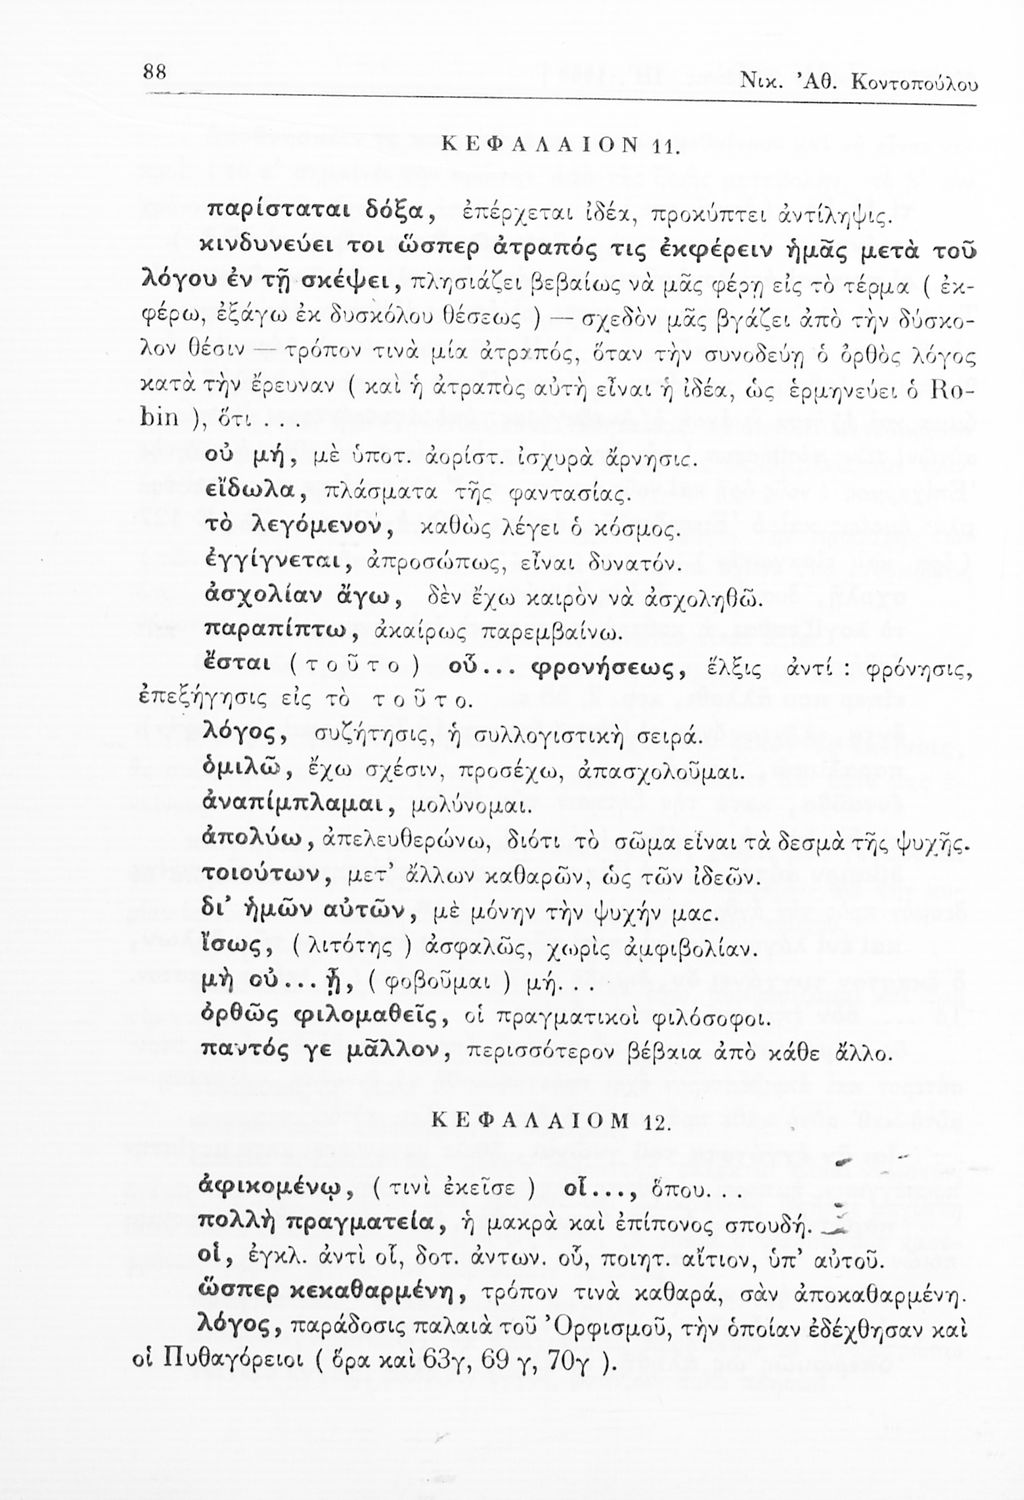 88
Νικ. Ἀθ. Κοντοπούλου
ΚΕΦΑΛΑΙΟΝ 11.
παρίσταται δόξα, ἐπέρχεται ἰδέα, προκύπτει ἀντίληψις.
κινδυνεύει τοι ὥσπερ ἀτραπός τις ἐκφέρειν ἡμᾶς μετὰ τοῦ
λόγου ἐν τῇ σκέψει, πλησιάζει βεβαίως νὰ μᾶς φέρῃ εἰς τὸ τέρμα ( ἐκ-
φέρω, ἐξάγω ἐκ δυσκόλου θέσεως ) — σχεδὸν μᾶς βγάζει ἀπὸ τὴν δύσκο-
λον θέσιν — τρόπον τινὰ μία ἀτραπός, ὅταν τὴν συνοδεύῃ ὁ ὀρθὸς λόγος
κατὰ τὴν ἔρευναν ( καὶ ἡ ἀτραπὸς αὐτὴ εἶναι ἡ ἰδέα, ὡς ἑρμηνεύει ὁ Ro-
bin ), ὅτι . . .
οὐ μή, μὲ ὑποτ. ἀορίστ. ἰσχυρὰ ἄρνησις.
εἴδωλα, πλάσματα τῆς φαντασίας.
τὸ λεγόμενον, καθὼς λέγει ὁ κόσμος.
ἐγγίγνεται, ἀπροσώπως, εἶναι δυνατόν.
ἀσχολίαν ἄγω, δὲν ἔχω καιρὸν νὰ ἀσχοληθῶ.
παραπίπτω, ἀκαίρως παρεμβαίνω.
ἔσται ( τοῦτο ) οὗ... φρονήσεως, ἕλξις ἀντί : φρόνησις,
ἐπεξήγησις εἰς τὸ τοῦτο.
λόγος, συζήτησις, ἡ συλλογιστικὴ σειρά.
ὁμιλῶ, ἔχω σχέσιν, προσέχω, ἀπασχολοῦμαι.
ἀναπίμπλαμαι, μολύνομαι.
ἀπολύω, ἀπελευθερώνω, διότι τὸ σῶμα εἶναι τὰ δεσμὰ τῆς ψυχῆς.
τοιούτων, μετ’ ἄλλων καθαρῶν, ὡς τῶν ἰδεῶν.
δι’ ἡμῶν αὐτῶν, μὲ μόνην τὴν ψυχήν μας.
ἴσως, ( λιτότης ) ἀσφαλῶς, χωρὶς ἀμφιβολίαν.
μὴ οὐ... ᾖ, ( φοβοῦμαι ) μή. . .
ὀρθῶς φιλομαθεῖς, οἱ πραγματικοὶ φιλόσοφοι.
παντός γε μᾶλλον, περισσότερον βέβαια ἀπὸ κάθε ἄλλο.
ΚΕΦΑΛΑΙΟΜ 12.
ἀφικομένῳ, ( τινὶ ἐκεῖσε ) οἷ..., ὅπου. . .
πολλὴ πραγματεία, ἡ μακρὰ καὶ ἐπίπονος σπουδή.
οἱ, ἐγκλ. ἀντὶ οἷ, δοτ. ἀντων. οὗ, ποιητ. αἴτιον, ὑπ’ αὐτοῦ.
ὥσπερ κεκαθαρμένη, τρόπον τινὰ καθαρά, σὰν ἀποκαθαρμένη.
λόγος, παράδοσις παλαιὰ τοῦ Ὀρφισμοῦ, τὴν ὁποίαν ἐδέχθησαν καὶ
οἱ Πυθαγόρειοι ( ὅρα καὶ 63γ, 69 γ, 70γ ).